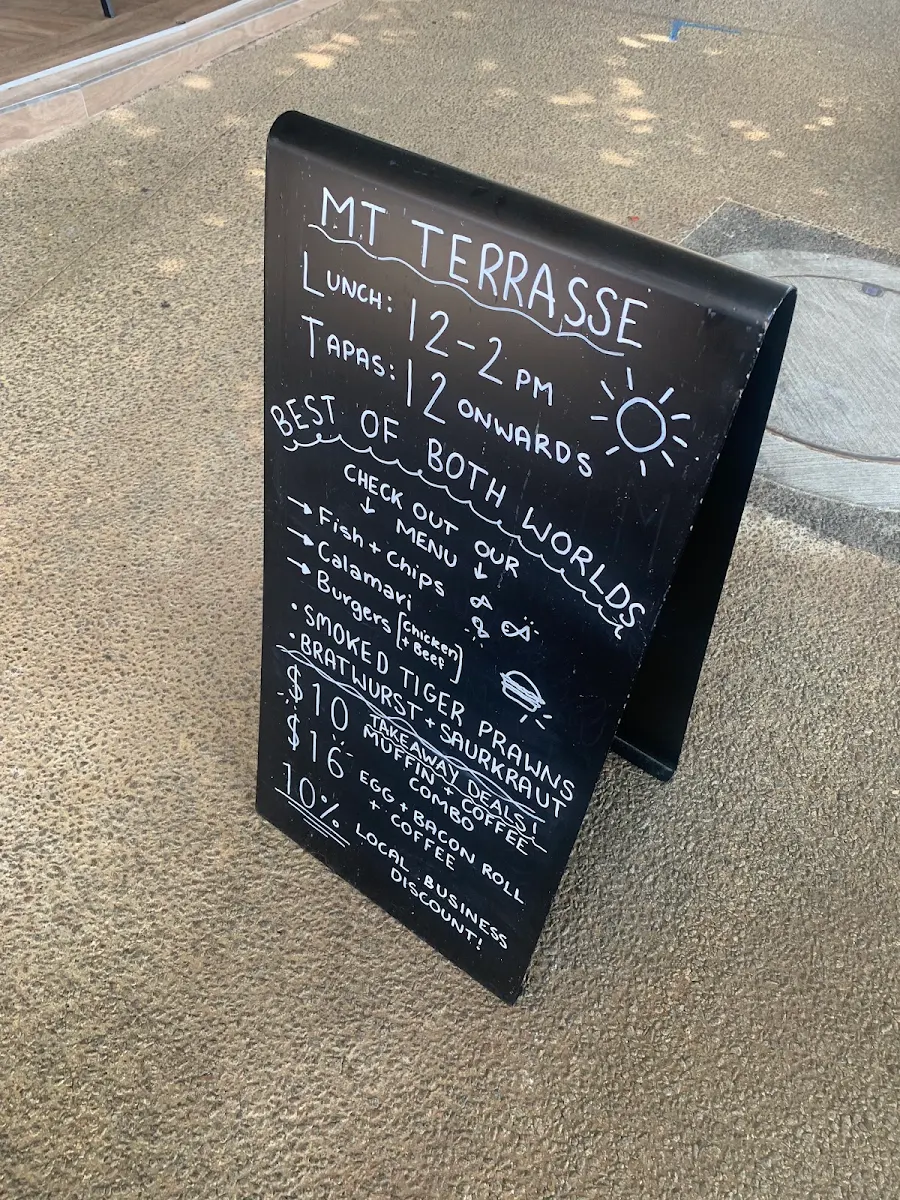 MT TERRASSE
LUNCH: 12-2 PM
TAPAS: 12 ONWARDS
BEST OF BOTH WORLDS
CHECK OUT OUR
MENU
→ Fish + Chips
→ Calamari
→ Burgers [Chicken + Beef]
• SMOKED TIGER PRAWNS
• BRATWURST + SAURKRAUT
TAKEAWAY DEALS!
$10 MUFFIN + COFFEE
COMBO
$16 EGG + BACON ROLL
+ COFFEE
10% LOCAL BUSINESS
DISCOUNT!